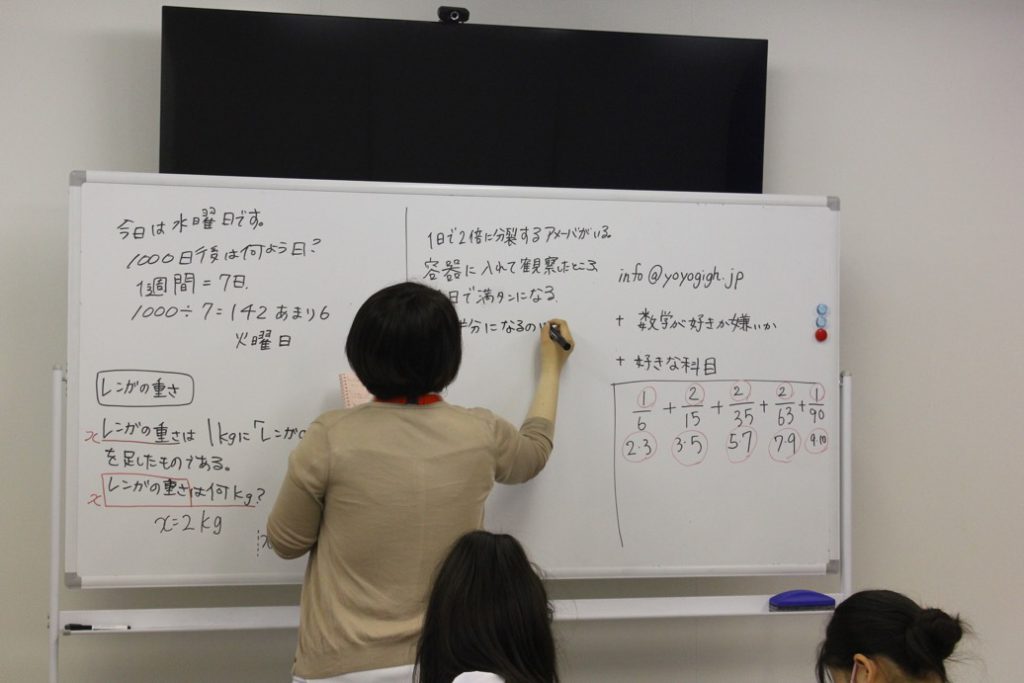 今日は水曜日です。
1000日後は何よう日?
1週間=7日
1000÷7=142 あまり6
火曜日
レンガの重さ
x レンガの重さは 1kgに「レンガの
を足したものである。
x レンガの重さは何kg?
x=2kg
1日で2倍に分裂するアメーバがいる。
容器に入れて観察したところ
日で満タンになる
半分になるのい
info@yoyogigh.jp
+ 数学が好きか嫌いか
+ 好きな科目
1/6 + 2/15 + 2/35 + 2/63 + 1/90
2·3 3·5 5·7 7·9 9·10